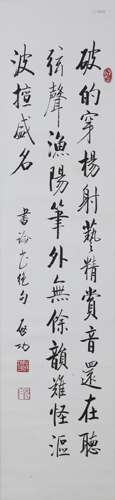 破的穿楊射藝精賞音還在聽
弦聲漁陽筆外無餘韻難怪漚
波擅盛名
書論絕句 啟功